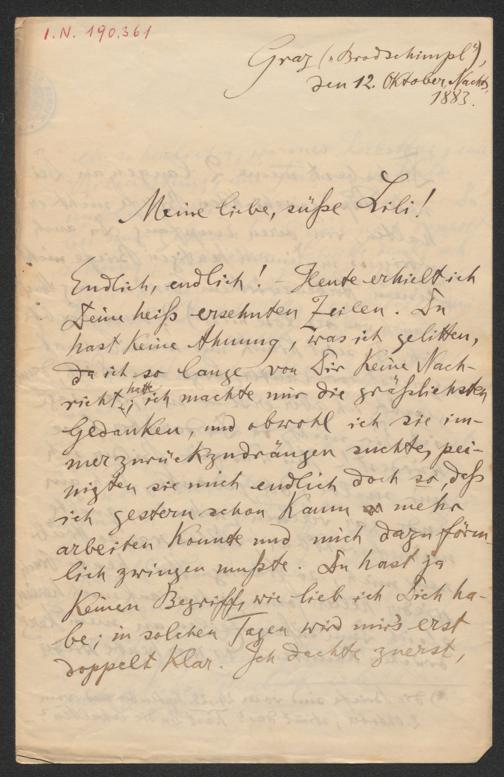 I.N. 190.361
Graz („Brodschimpl"),
den 12. Oktober Nachts
1883.
Meine liebe, süße Lili!
Endlich, endlich! – Heute erhielt ich
Deine heiß ersehnten Zeilen. Du
hast keine Ahnung, was ich gelitten,
da ich so lange von Dir keine Nach-
richt hatte; ich machte mir die gräßlichsten
Gedanken, und obwohl ich sie im-
mer zurückzudrängen suchte, pei-
nigten sie mich endlich doch so, daß
ich gestern schon kaum mehr
arbeiten konnte und mich dazu förm-
lich zwingen mußte. Du hast ja
keinen Begriff, wie lieb ich Dich ha-
be; in solchen Tagen wird mir's erst
doppelt klar. Ich dachte zuerst,